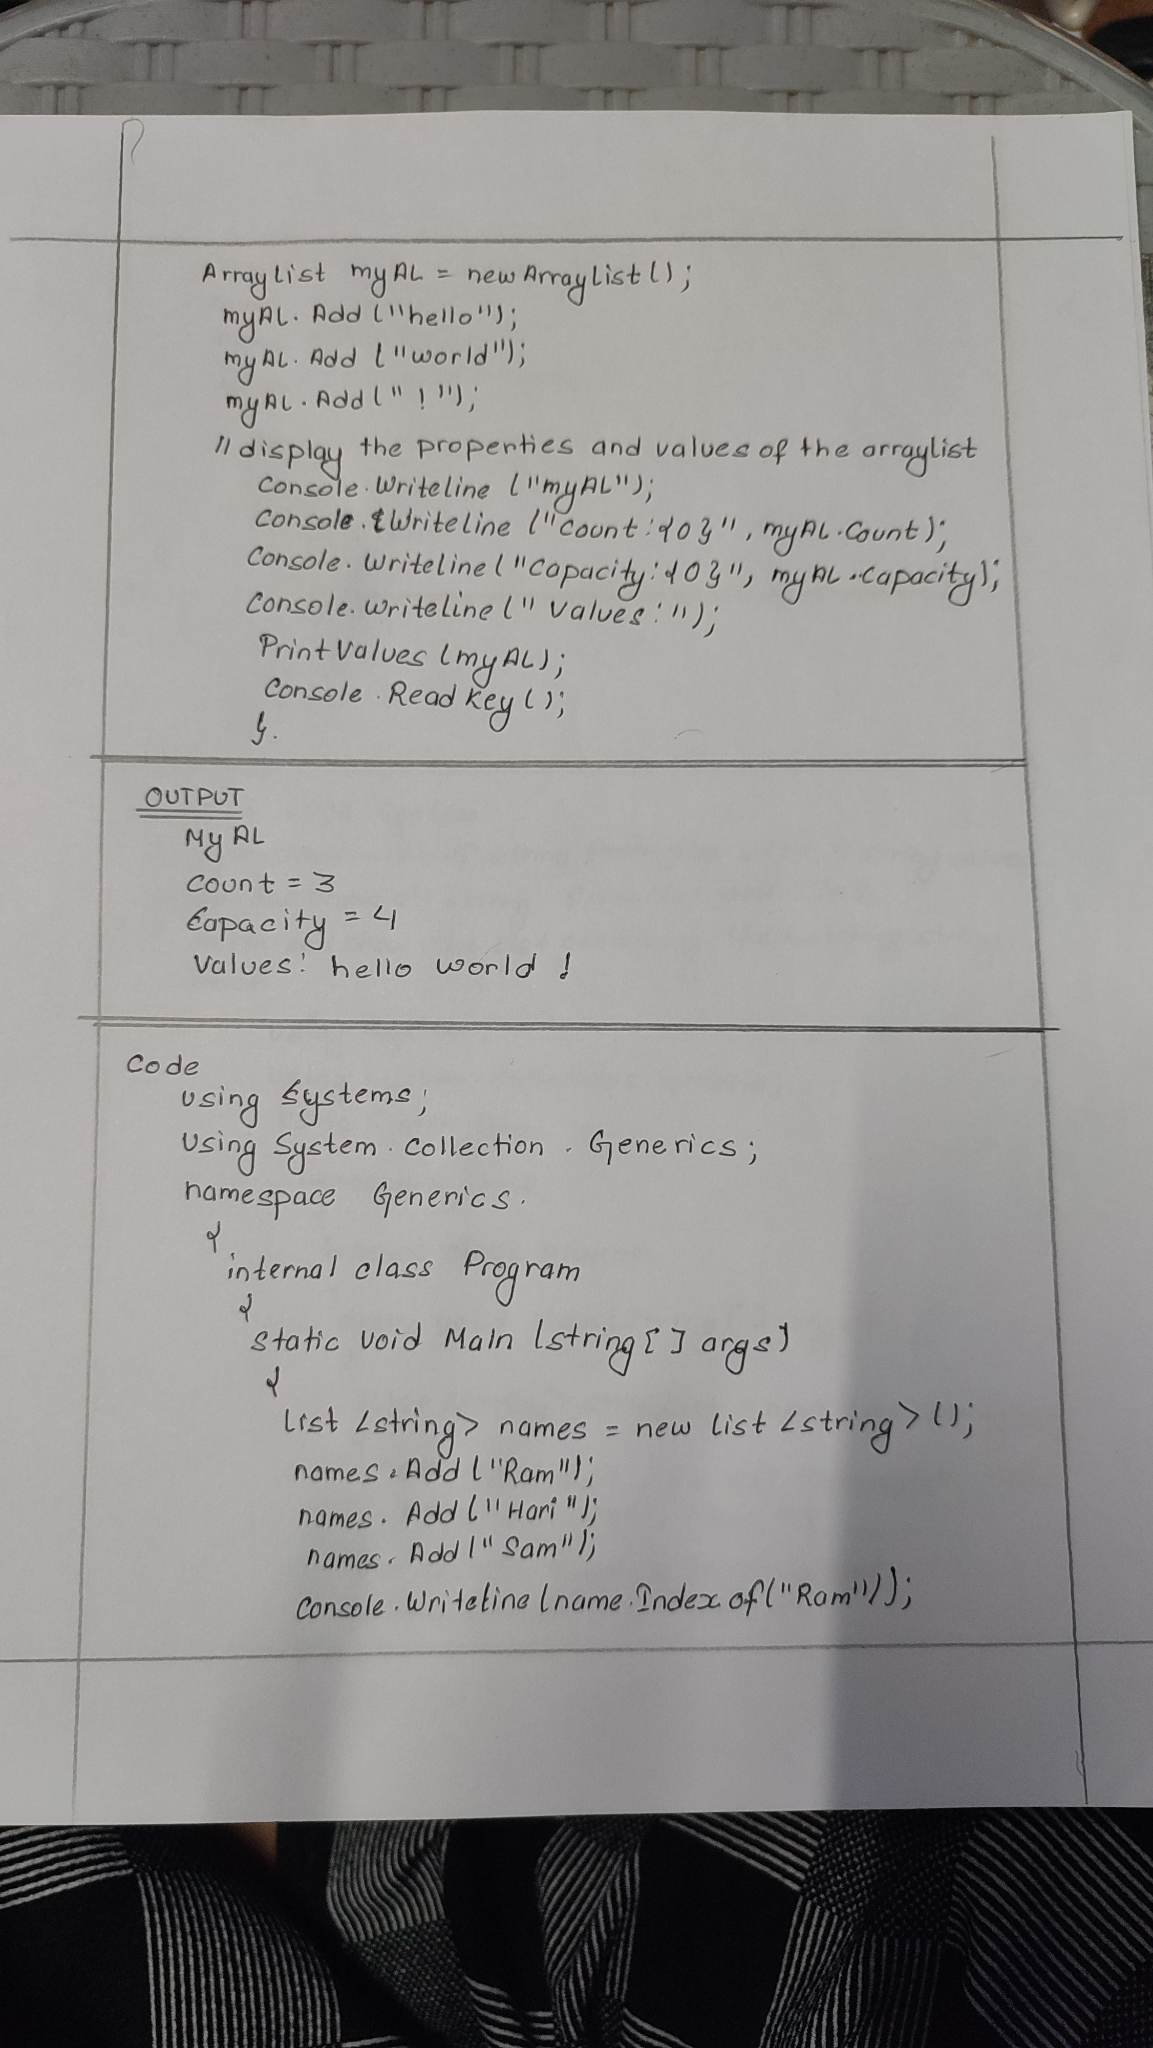 Arraylist myAL = new Arraylist();
myAL. Add ("hello");
myAL. Add ("world");
myAL. Add (" ! ");
// display the properties and values of the arraylist
Console. Writeline ("myAL");
Console. Writeline ("Count:{0}", myAL.Count);
Console. Writeline ("Capacity:{0}", myAL.Capacity);
Console. writeline (" Values:");
Print Values (myAL);
Console. Read Key ();
}.
OUTPUT
My AL
Count = 3
Capacity = 4
Values: hello world !
Code
using Systems;
Using System. Collection. Generics;
namespace Generics.
{
internal class Program
{
Static void Main (string [] args)
{
List <string> names = new list <string> ();
names. Add ("Ram");
names. Add ("Hari");
names. Add (" Sam");
Console. Writeline (name. Index of ("Ram"));